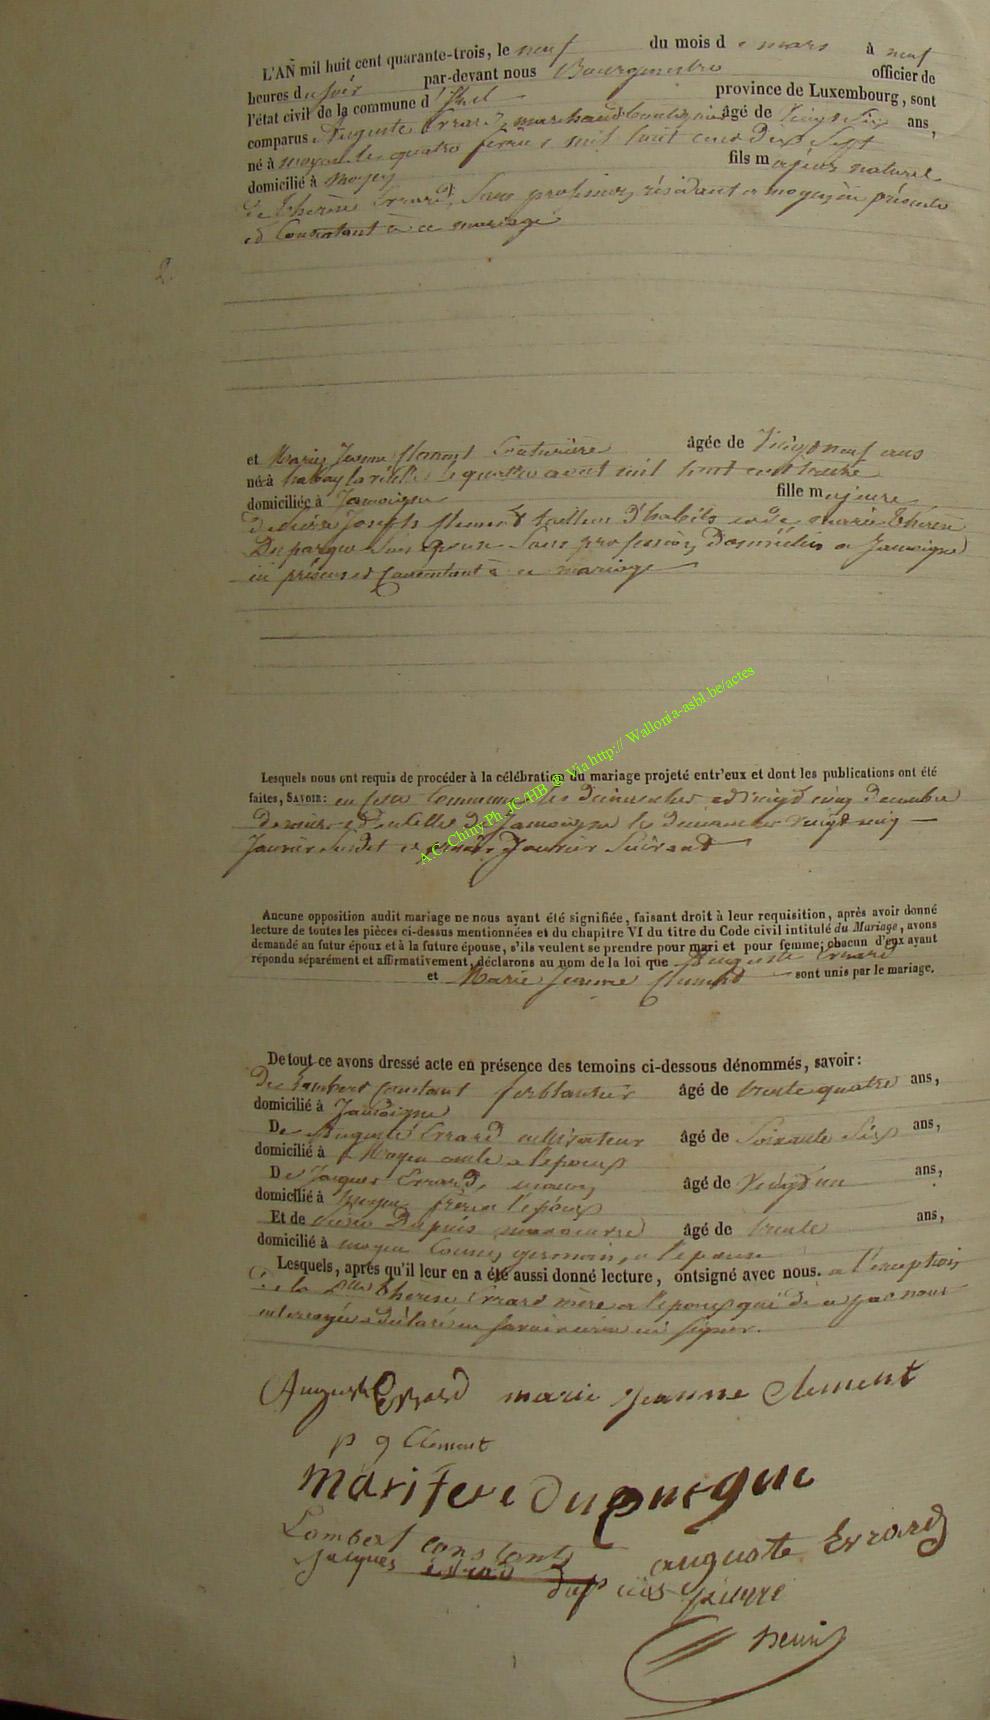 L'AN mil huit cent quarante-trois, le neuf du mois de mars à neuf
heures du soir par-devant nous Bourgmestre officier de
l'état civil de la commune d' province de Luxembourg, sont
comparus Auguste Errard, marchand âgé de vingt six ans,
né à moyen le quatre mil huit cent dix sept
domicilié à moyen fils majeur naturel
de thérèse Errard, sans profession, résidant a moyen, ici présente
et Consentant à ce mariage
2
et Marie Jeanne Clement Couturière âgée de Vingt neuf ans
né à habay la vieille le quatre avril mil huit cent treize
domiciliée à Jamoigne fille majeure
de Joseph Clement tailleur d'habits et de marie thérèse
Duparque son épouse sans profession, domiciliés a Jamoigne
ici présens et Consentant à ce mariage
Lesquels nous ont requis de procéder à la célébration du mariage projeté entr'eux et dont les publications ont été
faites, SAVOIR: en cette commune les dimanches vingt cinq décembre
dernier et celle de Jamoigne les dimanches vingt cinq
Janvier suivant
Aucune opposition audit mariage ne nous ayant été signifiée, faisant droit à leur requisition, après avoir donné
lecture de toutes les pièces ci-dessus mentionnées et du chapitre VI du titre du Code civil intitulé du Mariage, avons
demandé au futur époux et à la future épouse, s'ils veulent se prendre pour mari et pour femme; chacun d'eux ayant
répondu séparément et affirmativement, déclarons au nom de la loi que Auguste Errard
et Marie Jeanne Clement sont unis par le mariage.
De tout ce avons dressé acte en présence des temoins ci-dessous dénommés, savoir:
De Lambert Constant ferblantier âgé de trente quatre ans,
domicilié à Jamoigne
De Auguste Errard cultivateur âgé de Soixante Six ans,
domicilié à Moyen oncle a l'epoux
De Jacques Errard, maçon âgé de Vingt un ans,
domicilié à moyen frère a l'époux
Et de Dupuis manoeuvre âgé de trente ans,
domicilié à moyen Cousin germain, a l'epouse
Lesquels, après qu'il leur en a été aussi donné lecture, ont signé avec nous. a l'exception
de la thérèse Errard mère a l'epoux qui de a par nous
interrogée a déclaré ne savoir écrire ni signer.
Auguste Errard marie jeanne clement
p g Clement
mari tere duparque
Lambert constant
auguste Errard
jacques errard
dupuis pierre
henri
A.C. Chiny Ph. JC/HB @ Via http:// Wallonia-asbl.be/actes